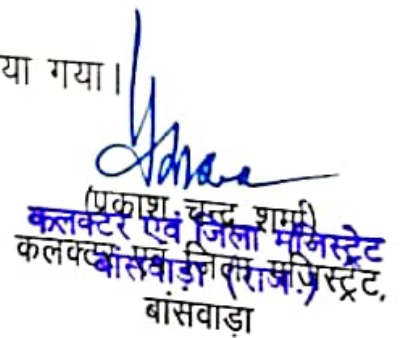 या गया।
(प्रकाश चन्द्र शर्मा)
कलक्टर एवं जिला मजिस्ट्रेट
बांसवाड़ा (राज.)
कलक्टर एवं जिला मजिस्ट्रेट,
बांसवाड़ा